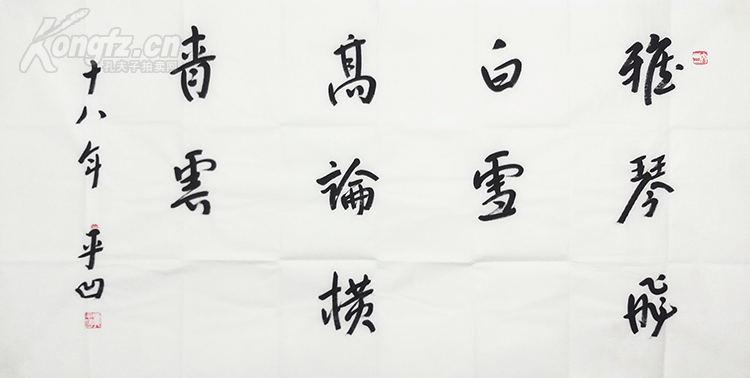 雅琴飛
白雪
高論橫
青雲
十八年 平凹
Kongfz.cn
孔夫子拍卖网